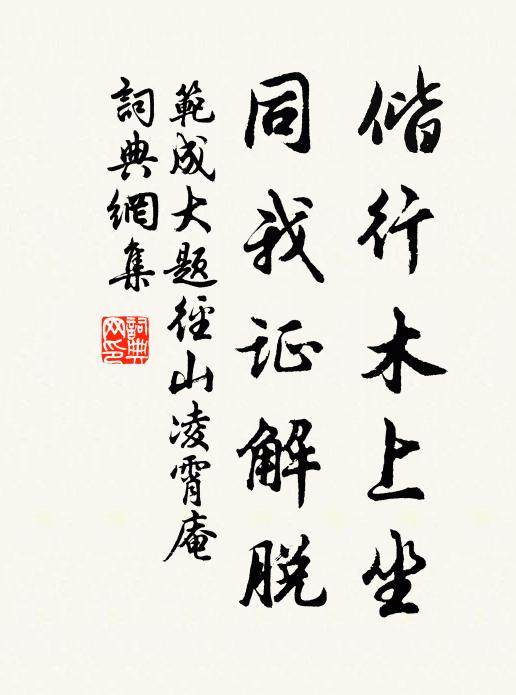 偕行木上坐
同我证解脱
範成大题徑山凌霄庵
詞典網集
詞典
网印